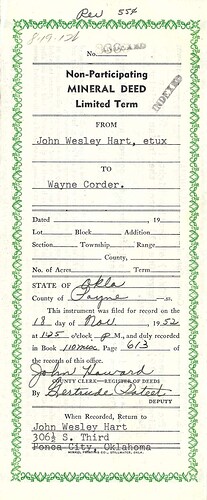 Rev 55¢
8-19-126
No.
INDEXED
Non-Participating
MINERAL DEED
Limited Term
INDEXED
FROM
John Wesley Hart, etux
TO
Wayne Corder.
Dated , 19
Lot Block Addition
Section Township Range
County,
No. of Acres Term
STATE OF Okla
County of Payne ss.
This instrument was filed for record on the
18 day of Nov. , 1952
at 1:25 o'clock P M., and duly recorded
in Book 110 Misc Page 613 of
the records of this office.
John Howard
COUNTY CLERK—REGISTER OF DEEDS
By Gertrude
DEPUTY
When Recorded, Return to
John Wesley Hart
306½ S. Third
Ponca City, Oklahoma